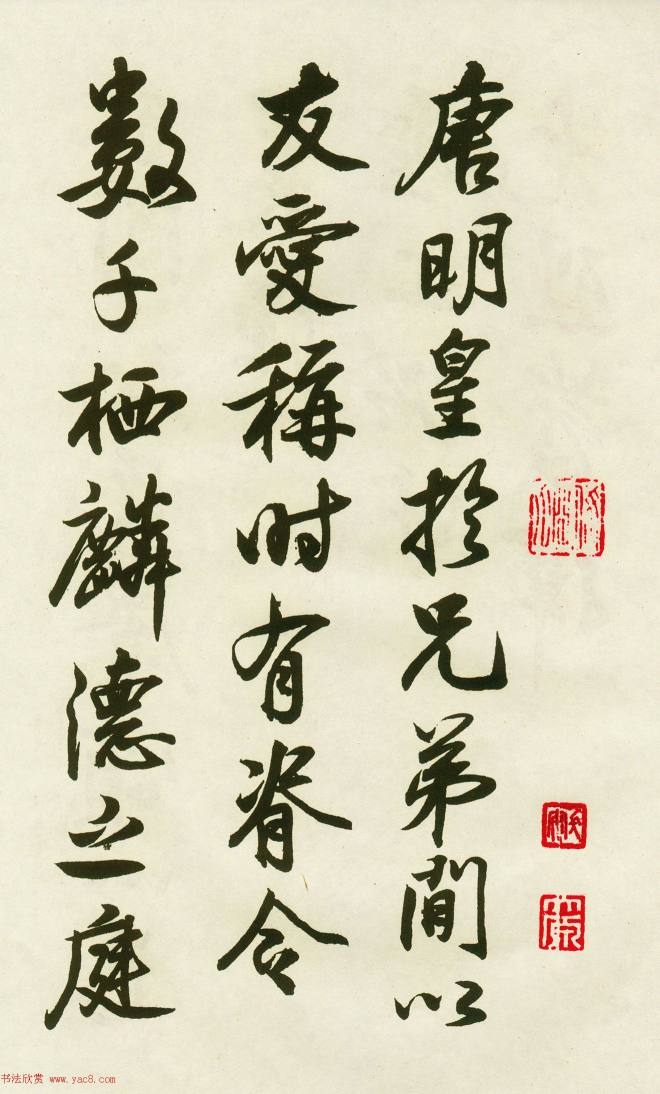 唐明皇於兄弟間以
友愛稱時有脊令
數千栖麟德之庭
书法欣赏 www.yac8.com